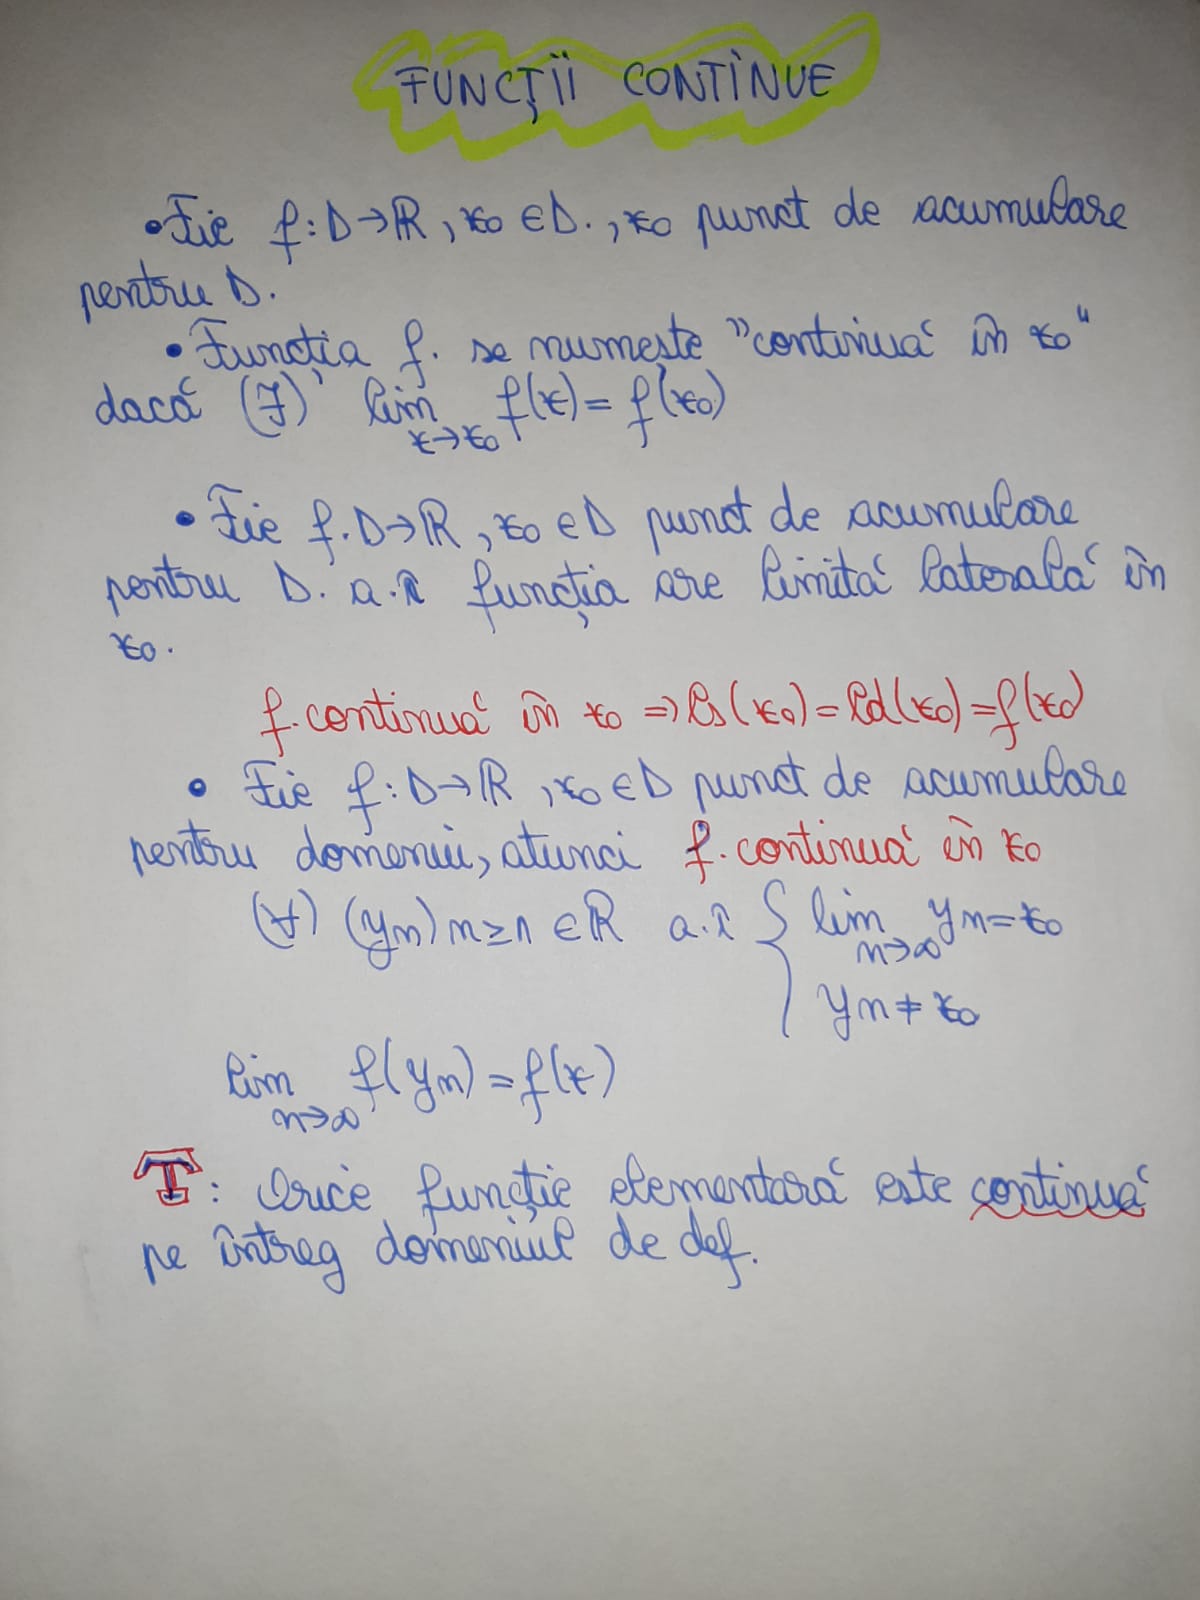 FUNCȚII CONTINUE
• Fie f: D→ℝ, x₀ ∈ D., x₀ punct de acumulare
pentru D.
• Funcția f. se numește "continuă în x₀"
dacă (∃) lim f(x) = f(x₀)
x→x₀
• Fie f. D→ℝ, x₀ ∈ D punct de acumulare
pentru D. a.î funcția are limită laterală în
x₀.
f. continuă în x₀ ⇒ ls(x₀) = ld(x₀) = f(x₀)
• Fie f: D→ℝ, x₀ ∈ D punct de acumulare
pentru domeniu, atunci f. continuă în x₀
(∀) (yn) n≥1 ∈ ℝ a.î { lim yn = x₀
n→∞
yn ≠ x₀
lim f(yn) = f(x)
n→∞
T: Orice funcție elementară este continuă
pe întreg domeniul de def.